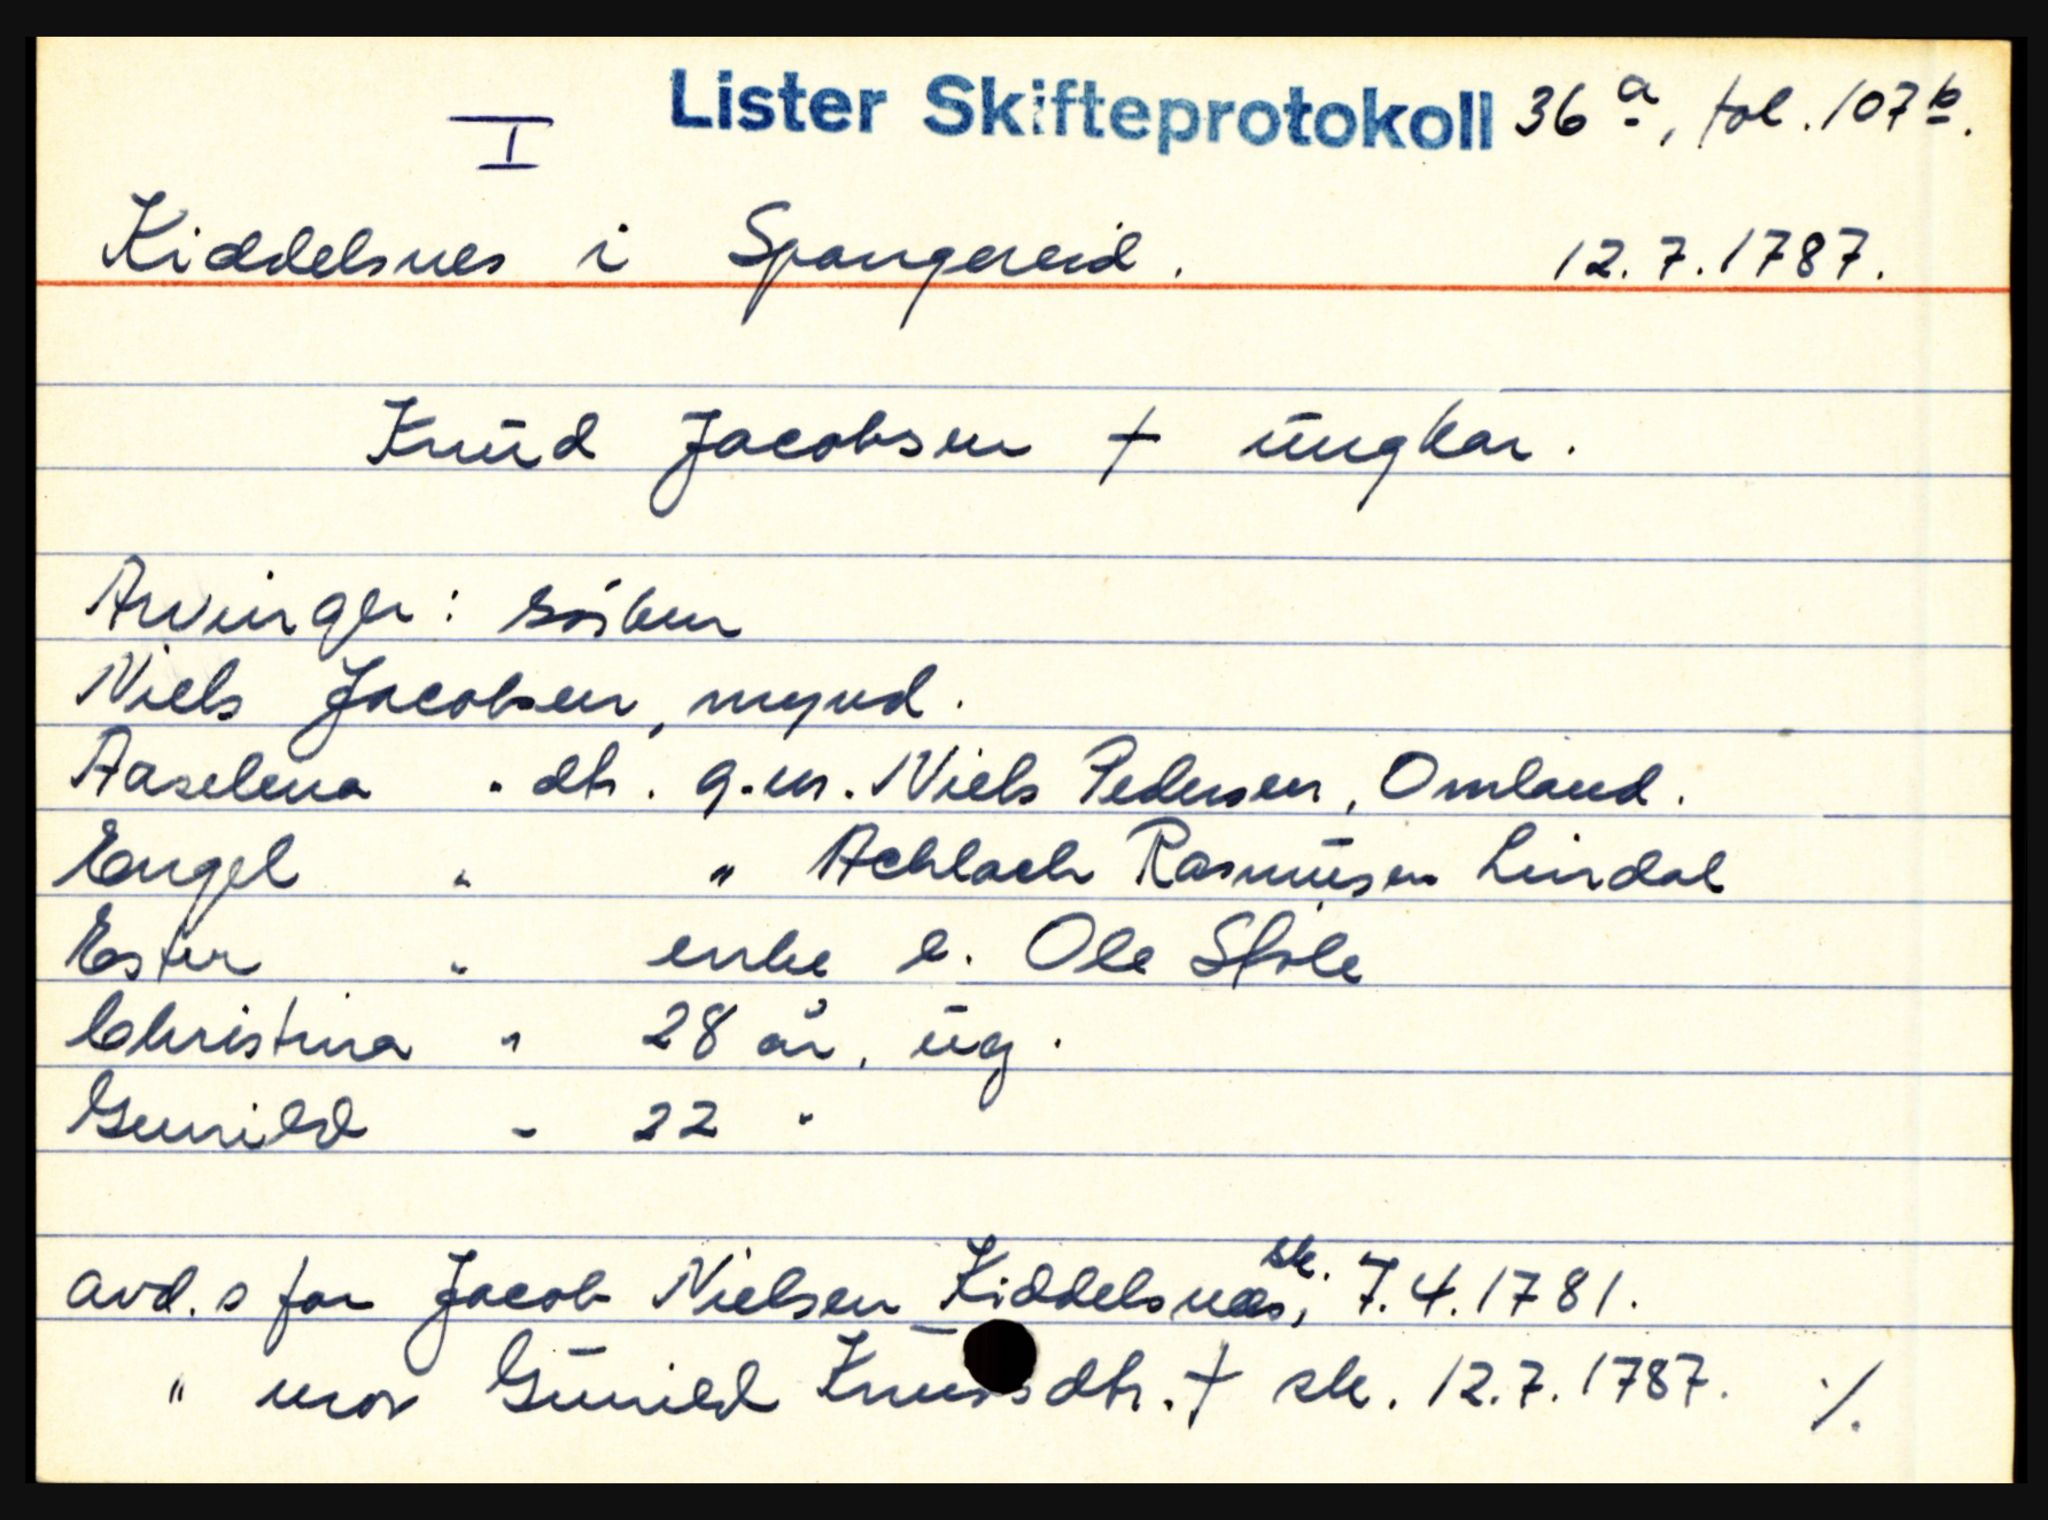 I Lister Skifteprotokoll 36 a, fol. 107 b.
Kiddelsnes i Spangereid. 12.7.1787.
Knud Jacobsen † ungkar.
Arvinger: søsken
Niels Jacobsen, mynd.
Aaselena " dtr. g.m. Niels Pedersen, Omland.
Engel " " Achlach Rasmusen Lindal
Ester " enke e. Ole Skole
Christina " 28 år, ug.
Gunild " 22 "
avd.s far Jacob Nielsen Kiddelsnæs, sk. 7.4.1781.
" mor Gunild Knudsdtr. † sk. 12.7.1787. ./.